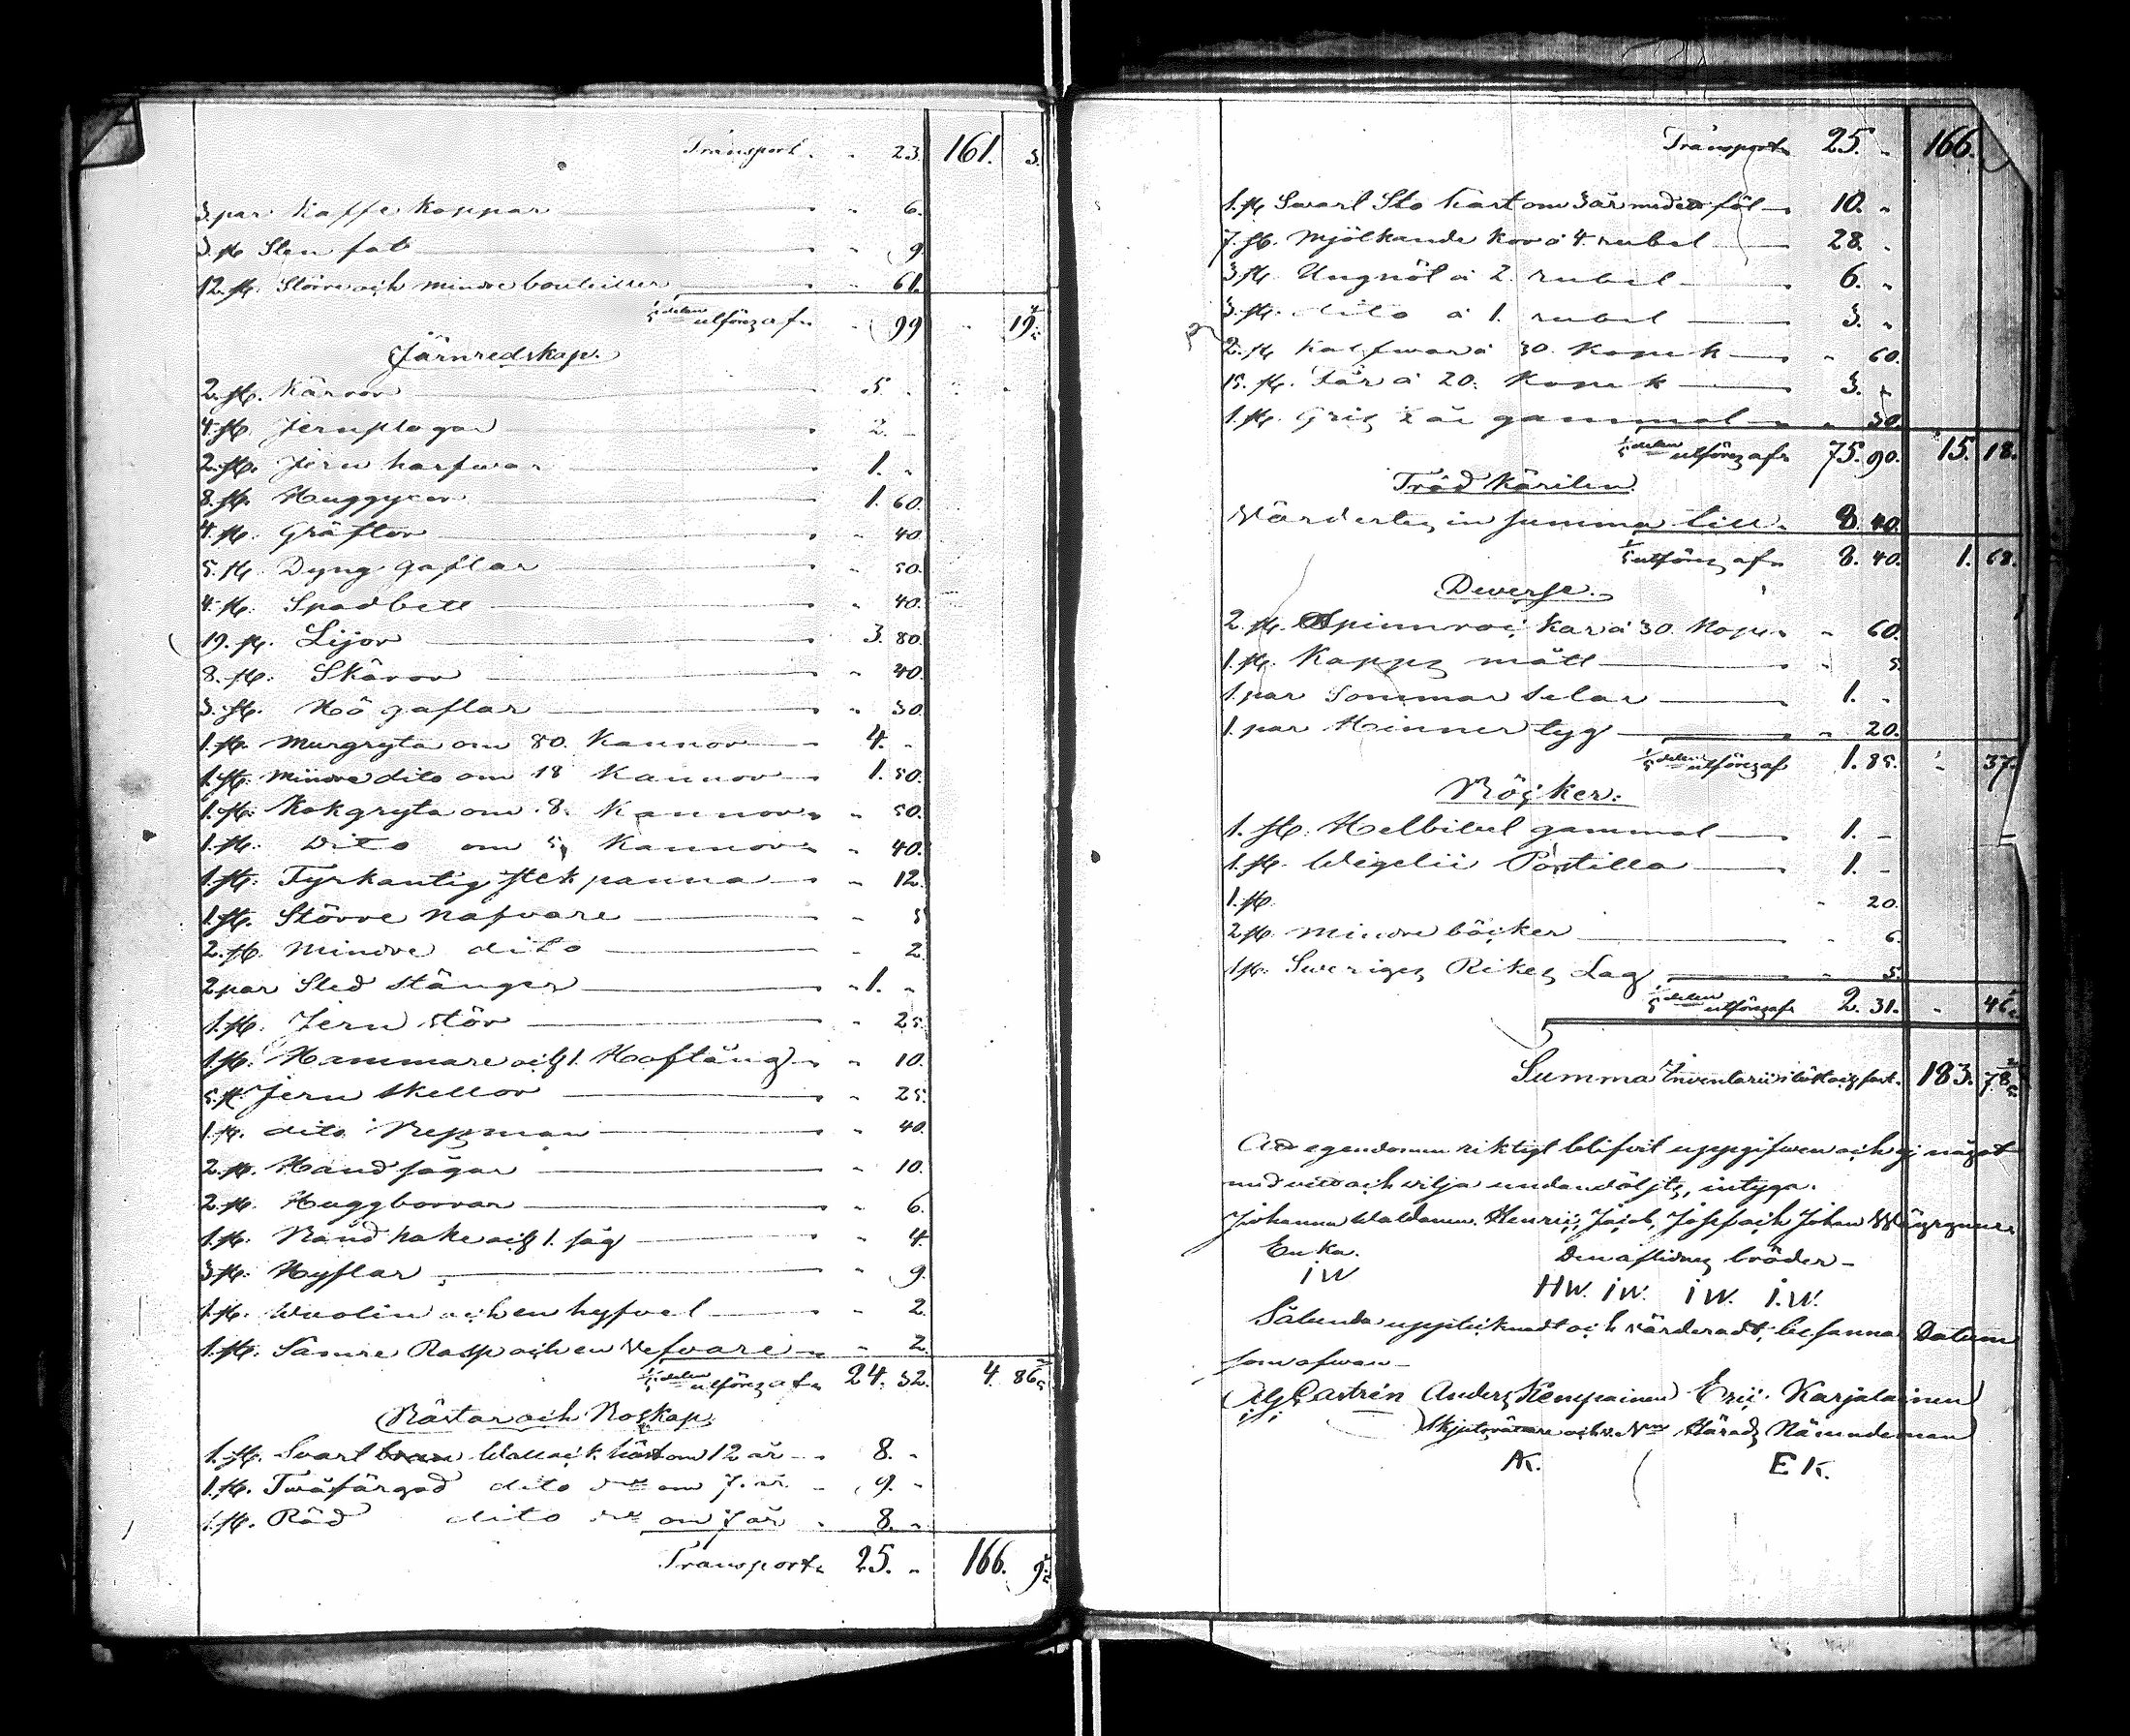 Transport " 23. 161. 3.
3. par Kaffe Koppar " 6.
3. st. Sten fat " 9.
12. st. Större och mindre bouteiller " 61.
1/5 delen utföres af " 99 " 19 4/5
Järnredskap.
2. st. Kärror 5. "
4. st. Jernplogar 2. "
2. st. Jern harfwar 1. "
8. st. Huggyxor 1. 60.
4. st. Gräftor " 40.
5. st. Dyng gaflar " 50.
4. st. Spadbett " 40.
19. st. Lijor 3. 80.
8. st. Skäror " 40.
3. st. Hö gaflar " 30.
1. st. Murgryta om 80. Kannor 4. "
1. st. mindre dito om 18 Kannor 1. 50.
1. st. Kokgryta om 8. Kannor " 50.
1. st. Dito om 5 Kannor " 40.
1. st. Fyrkantig stekpanna " 12.
1. st. Större nafvare " 5
2. st. mindre dito " 2.
2 par Sled stänger 1. "
1. st. Jern stör " 25.
1. st. Hammare och 1. Hoftång " 10.
5. st. Jern skellor " 25.
1. st. dito Repsman " 40.
2. st. Hand sågar " 10.
2. st. Huggborrar " 6.
1. st. Band hake och 1. såg " 4.
3. st. Hyflar " 9.
1. st. och en hyfvel " 2.
1. st. Sämre Rasp och en " 2.
1/5 delen utföres af 24. 32. 4. 86 2/5
Hästar och Boskap.
1. st. Svart Wallack häst om 12 år 8. "
1. st. Twåfärgad dito om 7. år 9. "
1. st. Röd dito om 7 år 8. "
Transport 25. " 166. 9
Transport 25. " 166.
1. st. Swart Sto häst om 3 år med ett föl 10. "
7. st. Mjölkande kor à 4. rubel 28. "
3 st. Ungnöt à 2. rubel 6. "
3. st. dito à 1. rubel 3. "
2. st. Kalfwar à 30. Kopek " 60.
15. st. Får à 20. Kopek 3. "
1. st. Gris 1/2 år gammal " 30.
1/5 delen utföres af 75. 90. 15. 18.
Träd Kärilen
Värdertes in summa till 8. 40.
1/5 utföres af 8. 40. 1. 68.
Diverse.
2. st. Spinnrockar à 30. Kop. " 60.
1. st. Kapps mått " 5.
1. par Sommar Selar 1. "
1. par Hinnertyg " 20.
1/5 delen utföres af 1. 85. " 37.
Böcker.
1. st. Helbibel gammal 1. "
1. st. Wegelii Postilla 1. "
1. st. " 20.
2 st. mindre böcker " 6.
1 st. Sweriges Rikes Lag " 5.
1/5 delen utföres af 2. 31. " 46
Summa Inventarii i löst och fast. 183. 78
egendomen riktigt blifvit uppgifwen och ej något
med vett och vilja undandöljts, intyga.
Johanna Waldemar. Henric, Jacob, Josef och Johan
Enka. Den aflidnes bröder
IW HW. IW. IW. I.W.
Sålunda upptecknadt och värderadt, befanns Datum
som ofwan
Castrén Anders Kemppainen Eric Karjalainen
Härads Nämndeman
AK. EK.